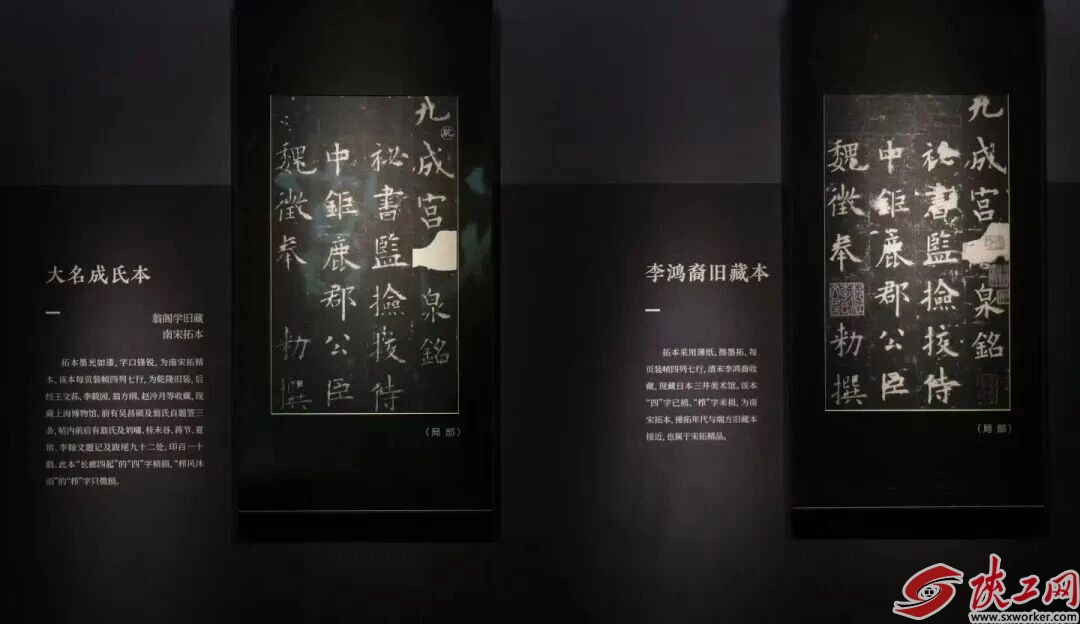 大名成氏本
翁阁学旧藏
南宋拓本
拓本墨光如漆, 字口锋锐, 为南宋拓精
本, 该本每页装帧四列七行, 为乾隆旧装, 后
经王文荪、李载园、翁方纲、赵泠月等收藏, 现
藏上海博物馆, 前有吴昌硕及翁氏自题签三
条, 帖内前后有翁氏及刘墉、桂未谷、蒋节、夏
、李翰文题记及跋尾九十二处, 印百一十
戳。此本“长廊四起”的“四”字稍损, “栉风沐
雨”的“栉”字只微损。
九成宮泉銘
祕書監撿挍侍
中鉅鹿郡公臣
魏徵奉勅撰
(局部)
李鸿裔旧藏本
拓本采用薄纸, 擦墨拓, 每
页装帧四列七行, 清末李鸿裔收
藏, 现藏日本三井美术馆, 该本
“四”字已损, “栉”字未损, 为南
宋拓本, 捶拓年代与端方旧藏本
接近, 也属于宋拓精品。
九成宮泉銘
祕書監撿挍侍
中鉅鹿郡公臣
魏徵奉勅撰
(局部)
陕工网
www.sxworker.com